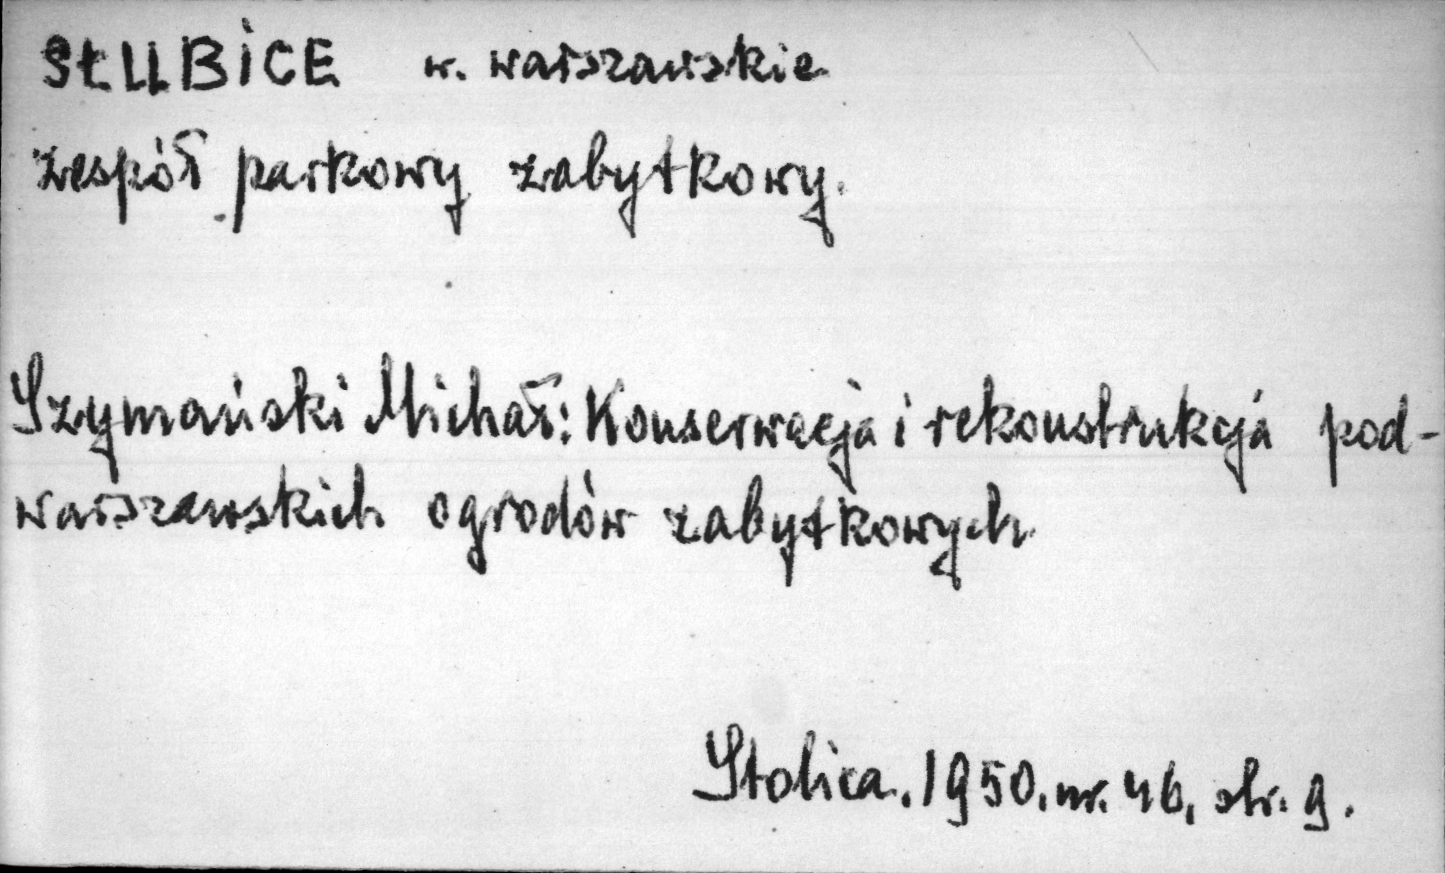 SŁUBiCE w. warszawskie
zespół parkowy zabytkowy.
Szymański Michał: Konserwacja i rekonstrukcja pod-
warszawskich ogrodów zabytkowych
Stolica. 1950. nr. 46, str. 9.